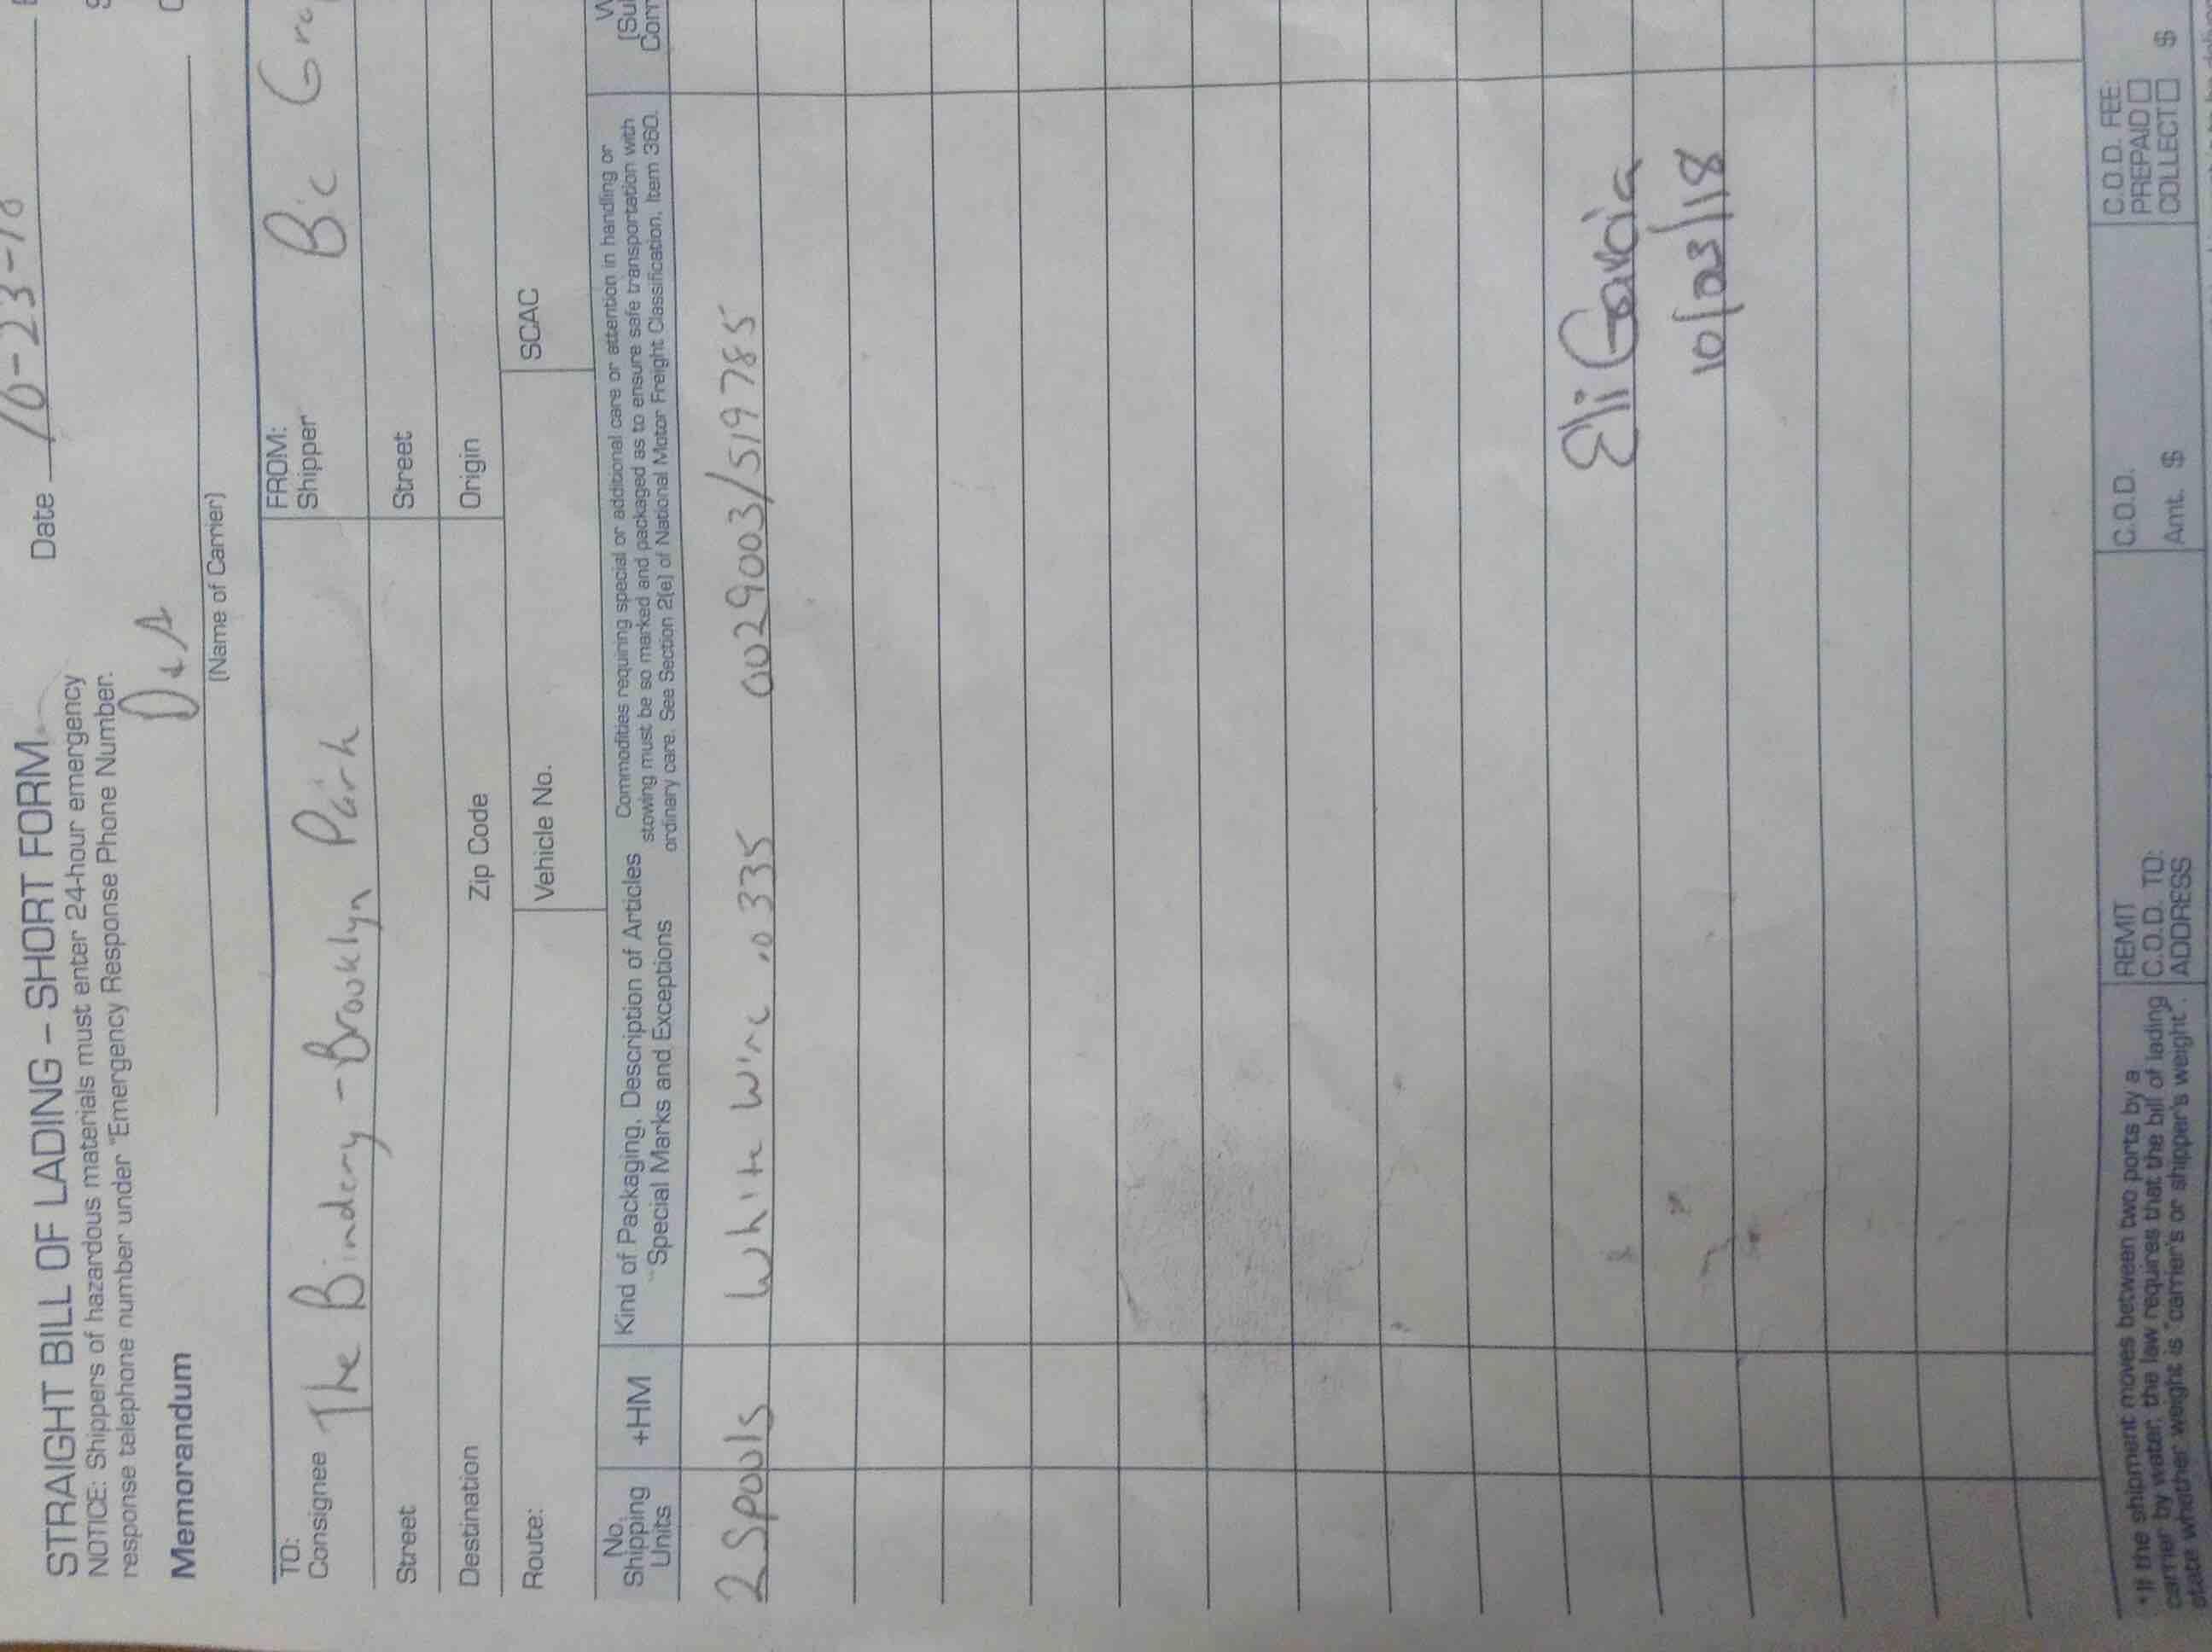 STRAIGHT BILL OF LADING – SHORT FORM
NOTICE: Shippers of hazardous materials must enter 24-hour emergency
response telephone number under "Emergency Response Phone Number.
Date 10-23-18
Memorandum
(Name of Carrier)
TO:
Consignee The Bindery - Brooklyn Park
FROM:
Shipper Bic
Street
Street
Destination
Zip Code
Origin
Route:
Vehicle No.
SCAC
No.
Shipping
Units
+HM
Kind of Packaging, Description of Articles
Special Marks and Exceptions
Commodities requiring special or additional care or attention in handling or
stowing must be so marked and packaged as to ensure safe transportation with
ordinary care. See Section 2(e) of National Motor Freight Classification, Item 360.
2 Spouls White Wire .0335 0029003/519785
Eli Garcia
10/23/18
*If the shipment moves between two ports by a
carrier by water, the law requires that the bill of lading
state whether weight is "carrier's or shipper's weight".
REMIT
C.O.D. TO:
ADDRESS
C.O.D.
Amt. $
C.O.D. FEE:
PREPAID
COLLECT $